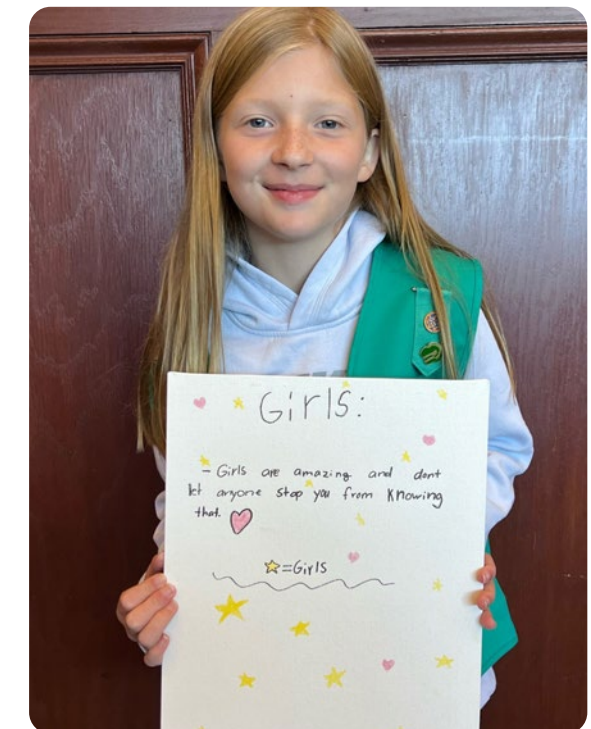 Girls:
- Girls are amazing and dont
let anyone stop you from knowing
that.
☆=Girls